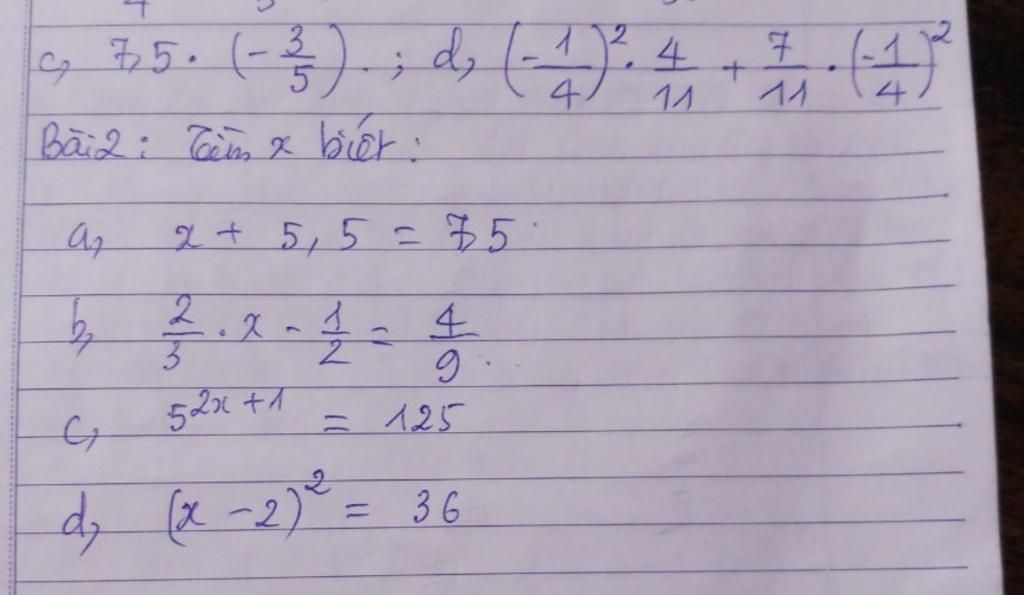 c, 7,5 · (-3/5) . ; d, (-1/4)² · 4/11 + 7/11 · (-1/4)²
Bài 2: Tìm x biết:
a, x + 5,5 = 7,5
b, 2/3 · x - 1/2 = 4/9.
c, 5^(2x+1) = 125
d, (x - 2)² = 36